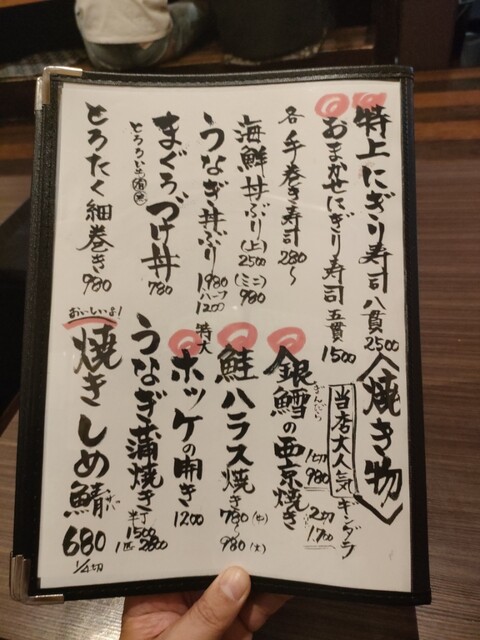 特上にぎり寿司 八貫 2500
おまかせにぎり寿司 五貫 1500
各 手巻き寿司 280〜
海鮮丼ぶり (上) 2500 (ミニ) 980
うなぎ丼ぶり 1,980 ハーフ 1200
まぐろづけ丼 780
とろたく細巻き 980
〈焼き物〉
当店大人気 ギンダラ
銀鱈の西京焼き 1切 980 2切 1,700
ぎんだら
鮭ハラス焼き 780(小)〜980(大)
特大 ホッケの開き 1200
うなぎ蒲焼き 半丁 1500 1匹 2800
おいしいよ!
焼きしめ鯖 680 1/4切